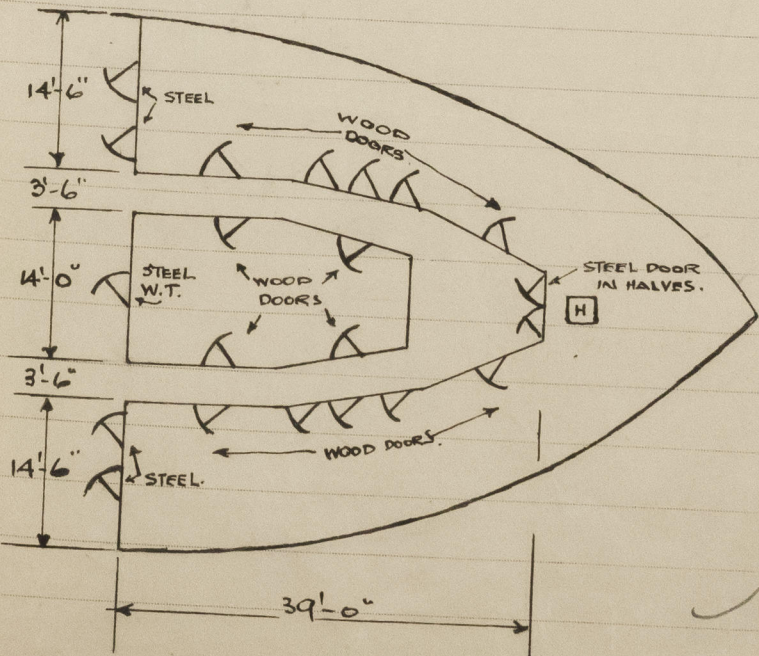 14'-6"
STEEL
WOOD
DOORS.
3'-6"
14'-0"
STEEL
W.T.
WOOD
DOORS
STEEL DOOR
IN HALVES.
H
3'-6"
14'-6"
STEEL.
WOOD DOORS.
39'-0"